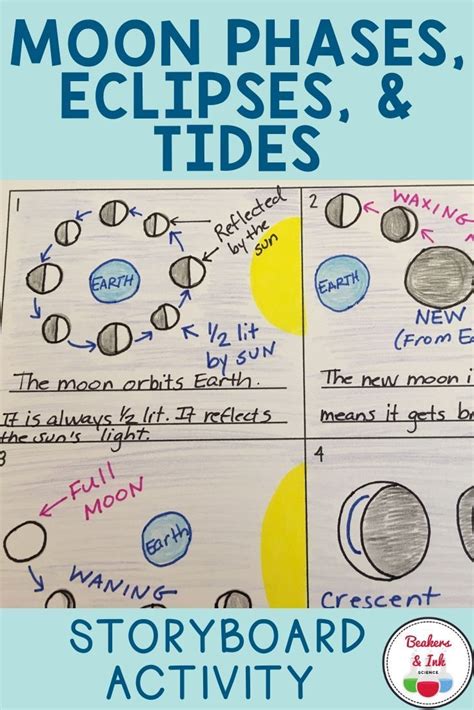 MOON PHASES,
ECLIPSES, &
TIDES
1
Reflected
by the
sun
EARTH
1/2 lit
by SUN
The moon orbits Earth.
It is always 1/2 lit. It reflects
the sun's light.
2
WAXING
EARTH
NEW
(From Ea
The new moon i
means it gets br
3
Full
MOON
Earth
WANING
4
Crescent
STORYBOARD
ACTIVITY
Beakers
& Ink
SCIENCE